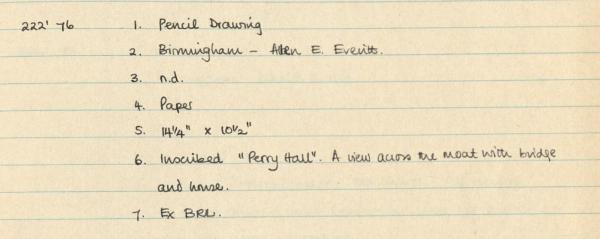 222' 76 1. Pencil Drawing
2. Birmingham - Allen E. Everitt.
3. n.d.
4. Paper
5. 14¼" x 10½"
6. Inscribed "Perry Hall". A view across the moat with bridge
and house.
7. Ex BRL.